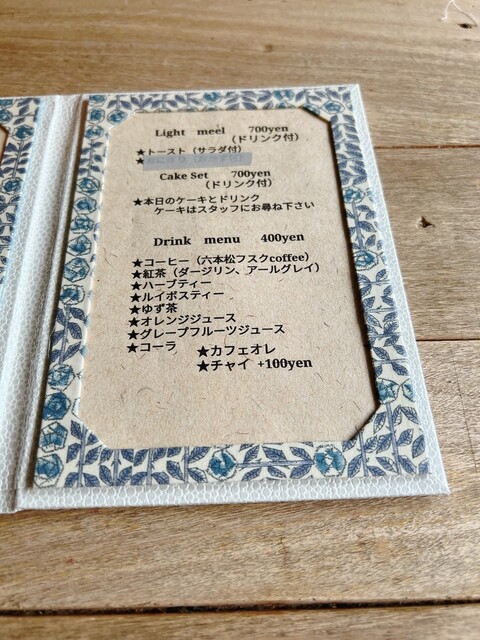 Light meel 700yen
(ドリンク付)
★トースト（サラダ付）
★
Cake Set 700yen
(ドリンク付)
★本日のケーキとドリンク
ケーキはスタッフにお尋ね下さい
Drink menu 400yen
★コーヒー（六本松フスクcoffee）
★紅茶（ダージリン、アールグレイ）
★ハーブティー
★ルイボスティー
★ゆず茶
★オレンジジュース
★グレープフルーツジュース
★コーラ ★カフェオレ
★チャイ +100yen